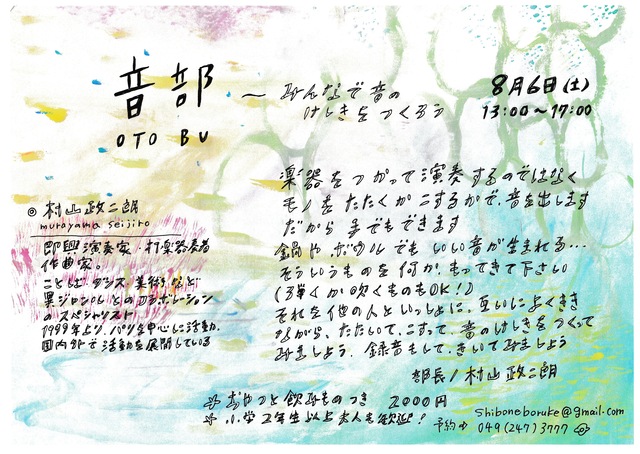 音部
OTO BU
〜 みんなで音の
けしきをつくろう
8月6日(土)
13:00〜17:00
楽器をつかって演奏するのではなく
モノをたたくかこするかで、音を出します
だから までもできます
鍋やボウルでもいい音が生まれる…
そういうものを何か、もってきて下さい
(弾くか吹くものもOK!)
それを他の人といっしょに、互いによくきき
ながら、たたいて、こすって、音のけしきをつくって
みましょう。録音もして、きいてみましょう
部長/村山政二朗
◎ 村山政二朗
murayama seijiro
即興演奏家・打楽器奏者
作曲家。
ことば、ダンス、美術など
異ジャンルとのコラボレーション
のスペシャリスト
1999年より、パリを中心に活動、
国内外で活動を展開している
おやつと飲みものつき 2000円
小学2年生以上大人も歓迎!
予約→ shiboneboruke@gmail.com
049(247)3777